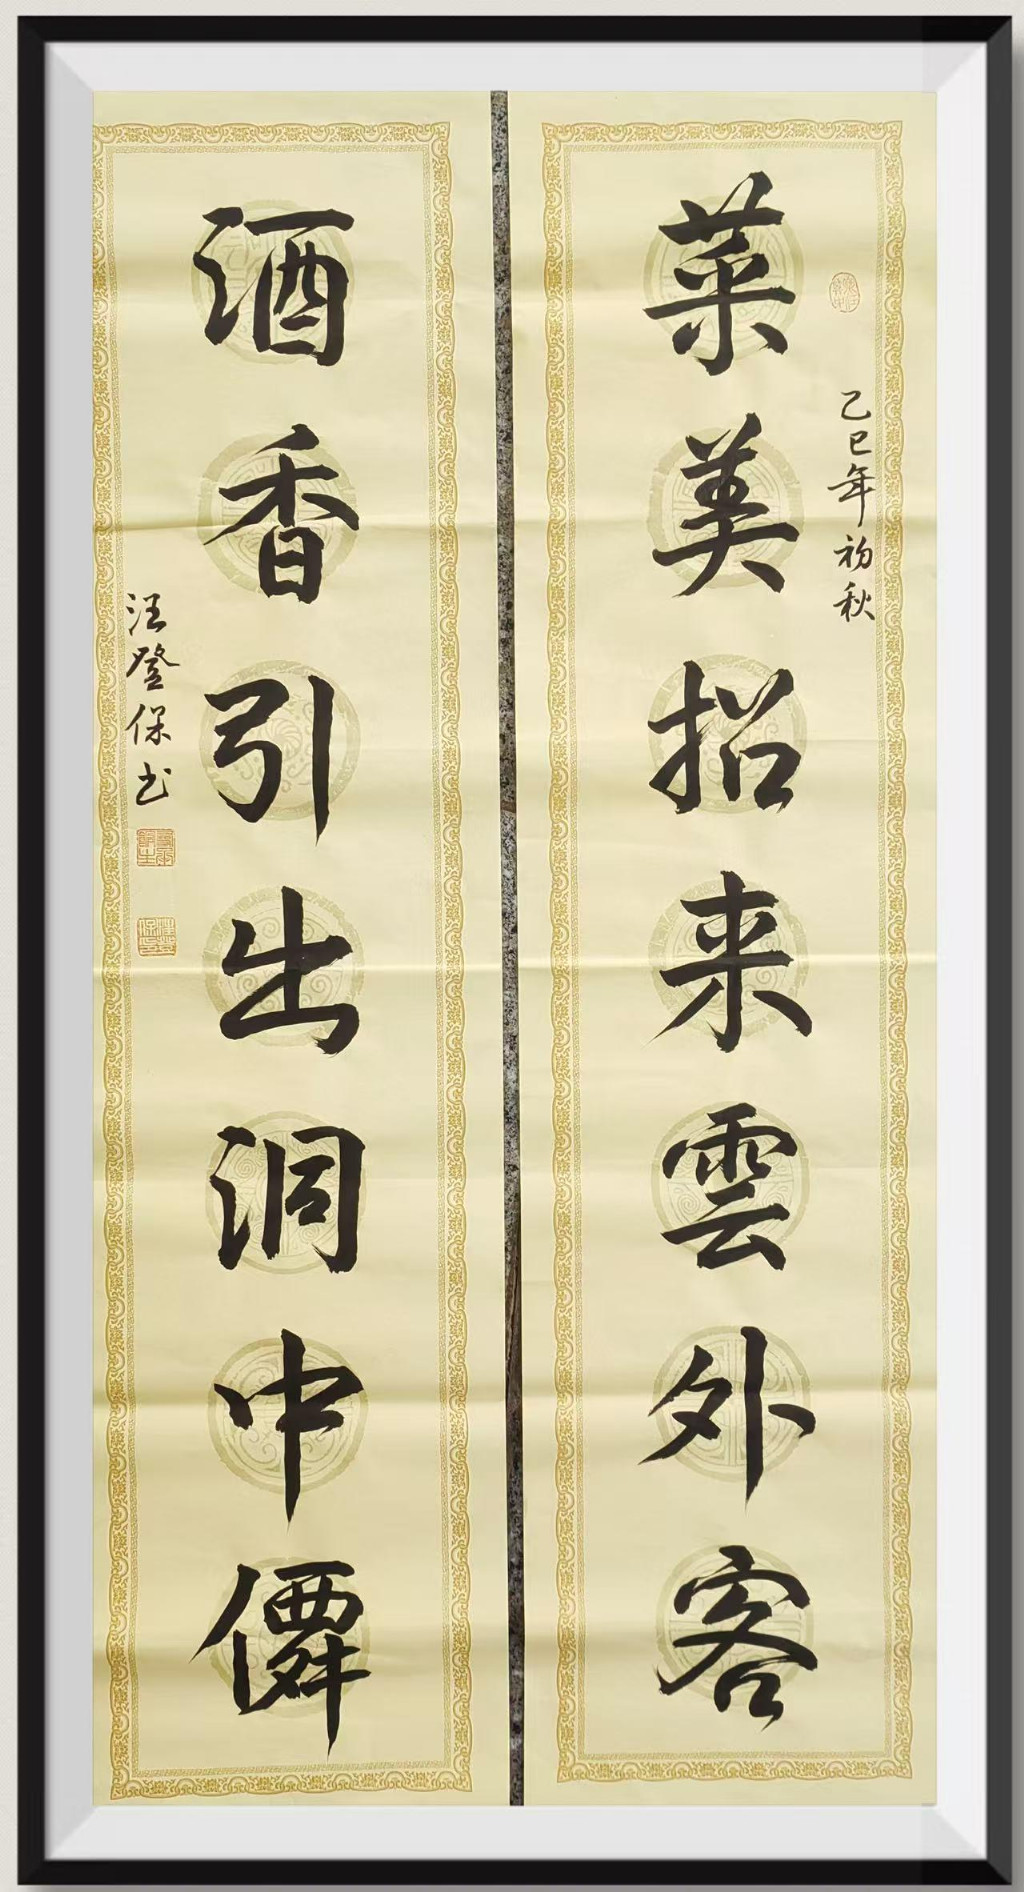 乙巳年初秋
菜美招来雲外客
酒香引出洞中僊
汪登保书